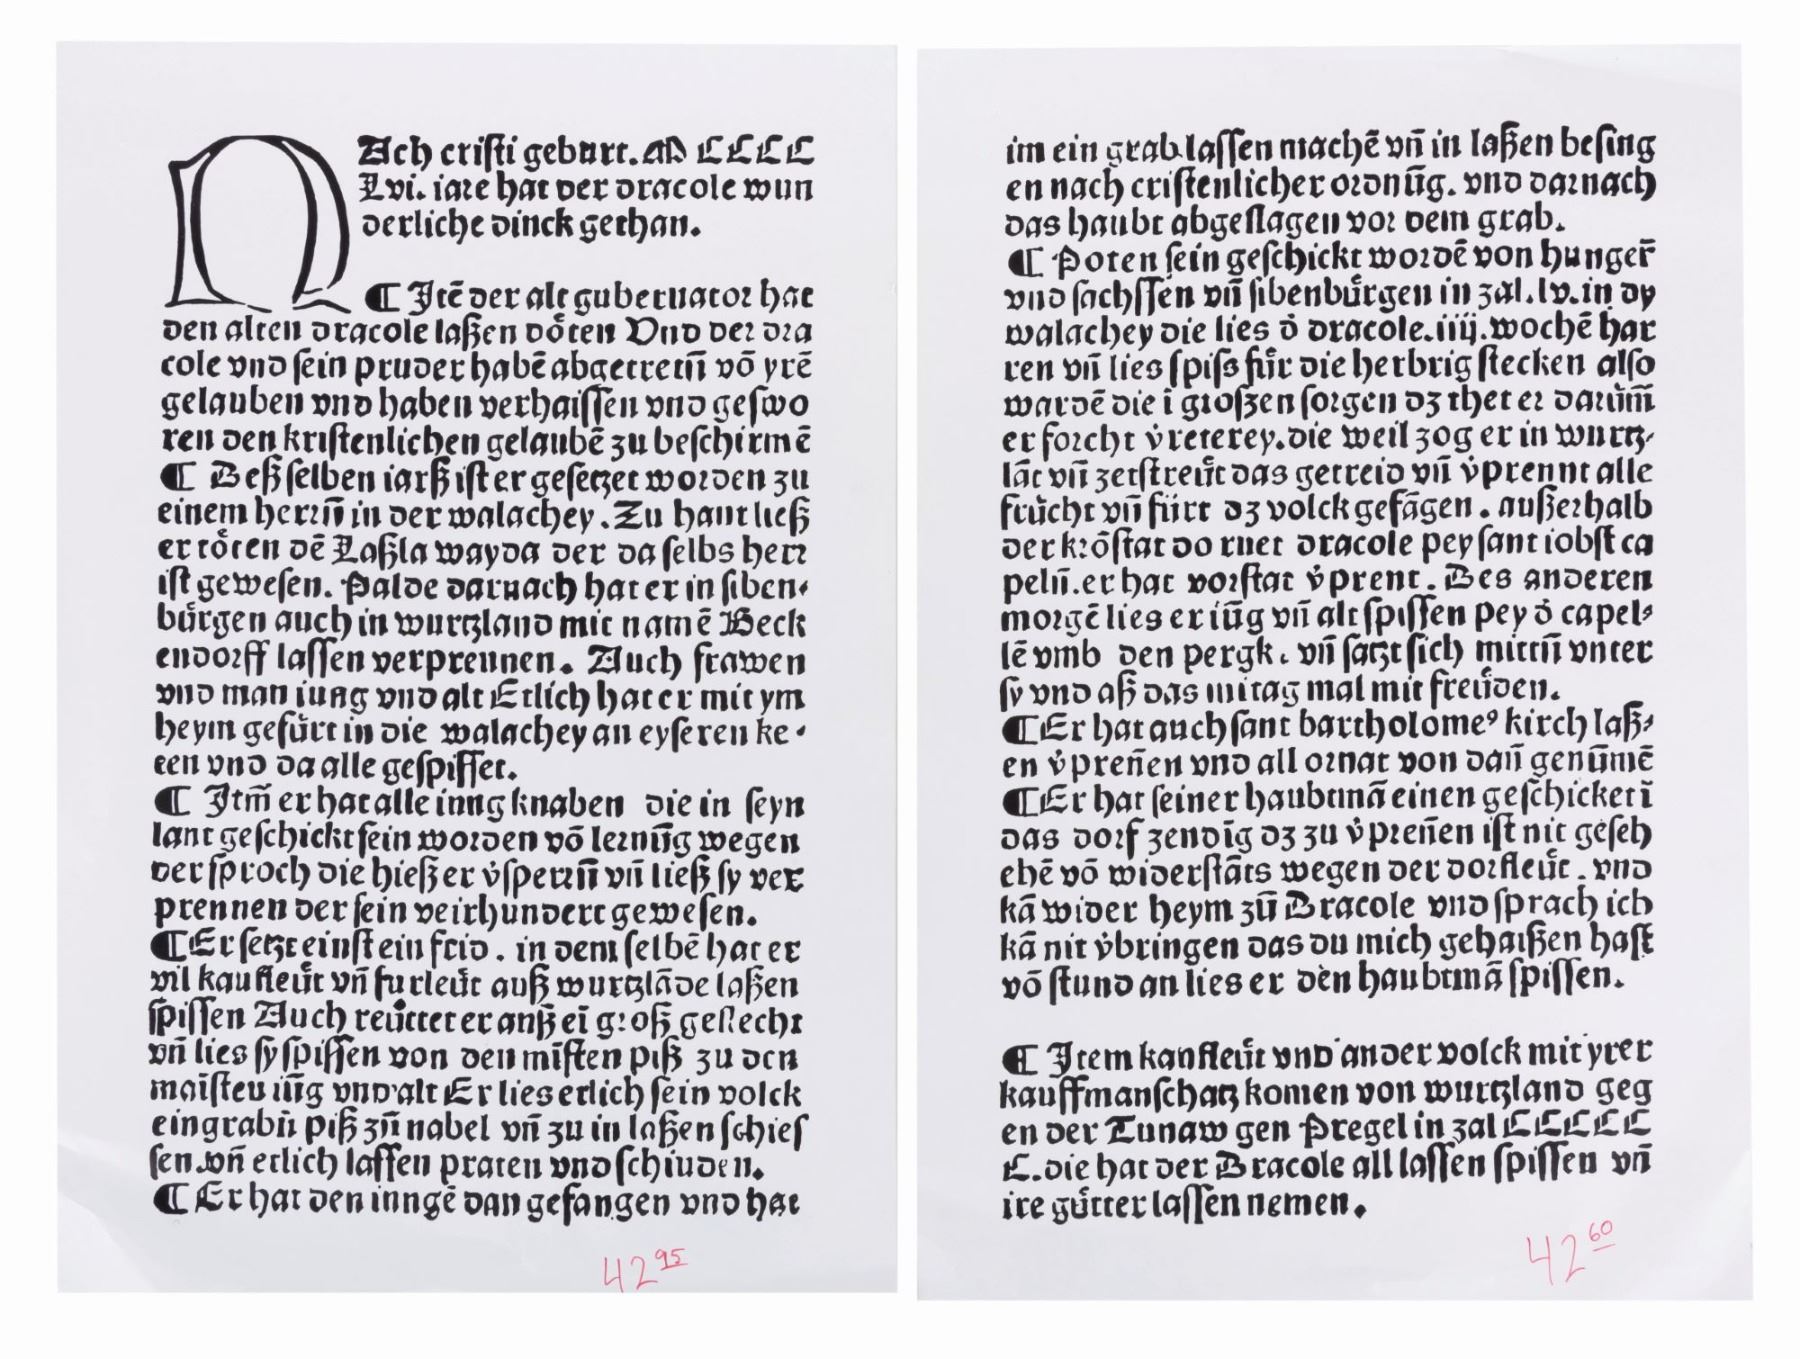 NAch cristi geburt. M CCCC
Lvi. iare hat der dracole wun
derliche dinck gethan.
¶ Jtē der alt gubernator hat
den alten dracole laßen döten Vnd der dra
cole vnd sein pruder habē abgetretn̄ vō yrē
gelauben vnd haben verhaissen vnd geswo
ren den kristenlichen gelaubē zu beschirmē
¶ Deß selben iarß ist er gesetzet worden zu
einem herrn̄ in der walachey. Zu hant ließ
er töten dē Laßla wayda der da selbs herr
ist gewesen. Palde darnach hat er in siben-
bürgen auch in wurtzland mit namē Beck
endorff lassen verprennen. Auch frawen
vnd man iung vnd alt Etlich hat er mit ym
heym gefürt in die walachey an eyseren ke-
ten vnd da alle gespisset.
¶ Jtm̄ er hat alle iung knaben die in seyn
lant geschickt sein worden vō lernūg wegen
der sproch die hieß er v̇sperrn̄ vn̄ ließ sy ver
prennen der sein veirhundert gewesen.
¶ Er setzt einst ein frid. in dem selbē hat er
vil kaufleüt vn̄ furleüt auß wurtzlāde laßen
spissen Auch reüttet er auß eī groß geslecht
vn̄ lies sy spissen von den mīsten piß zu den
maīsten iūg vnd alt Er lies etlich sein volck
eingrabn̄ piß zū nabel vn̄ zu in laßen schies
sen. vn̄ etlich lassen praten vnd schinden.
¶ Er hat den iungē dan gefangen vnd hat
42 95
im ein grab lassen machē vn̄ in laßen besing
en nach cristenlicher ordnūg. vnd darnach
das haubt abgeslagen vor dem grab.
¶ Poten sein geschickt wordē von hungerr̄
vnd sachssen vn̄ sibenbürgen in zal. lv. in dy
walachey die lies ḋ dracole. iiij. wochē har
ren vn̄ lies spiss für die herbrig stecken also
wardē die ī groszen sorgen dz thet er darūm̄
er forcht v̇reterey. die weil zog er in wurtz-
lāt vn̄ zerstreüt das getreid vn̄ v̇prennt alle
frücht vn̄ fürt dz volck gefāgen. außerhalb
der krōstat do ruet dracole pey sant iobst ca
peln̄. er hat vorstat v̇prent. Des anderen
morgē lies er iūg vn̄ alt spissen pey ḋ capel-
lē vmb den pergk. vn̄ satzt sich mittn̄ vnter
sy vnd aß das mitag mal mit freüden.
¶ Er hat auch sant bartholomeꝰ kirch laß-
en v̇preñen vnd all ornat von dan̄ genūmē
¶ Er hat seiner haubtmā einen geschicket ī
das dorf zendīg dz zu v̇preñen ist nit geseh
ehē vō widerstāts wegen der dorfleüt. vnd
kā wider heym zū Dracole vnd sprach ich
kā nit v̇bringen das du mich gehaißen hast
vō stund an lies er den haubtmā spissen.
¶ Jtem kaufleüt vnd ander volck mit yrer
kauffmanschatz komen von wurtzland geg
en der Tunaw gen Pregel in zal CCCCC
C. die hat der Dracole all lassen spissen vn̄
ire gütter lassen nemen.
42 60